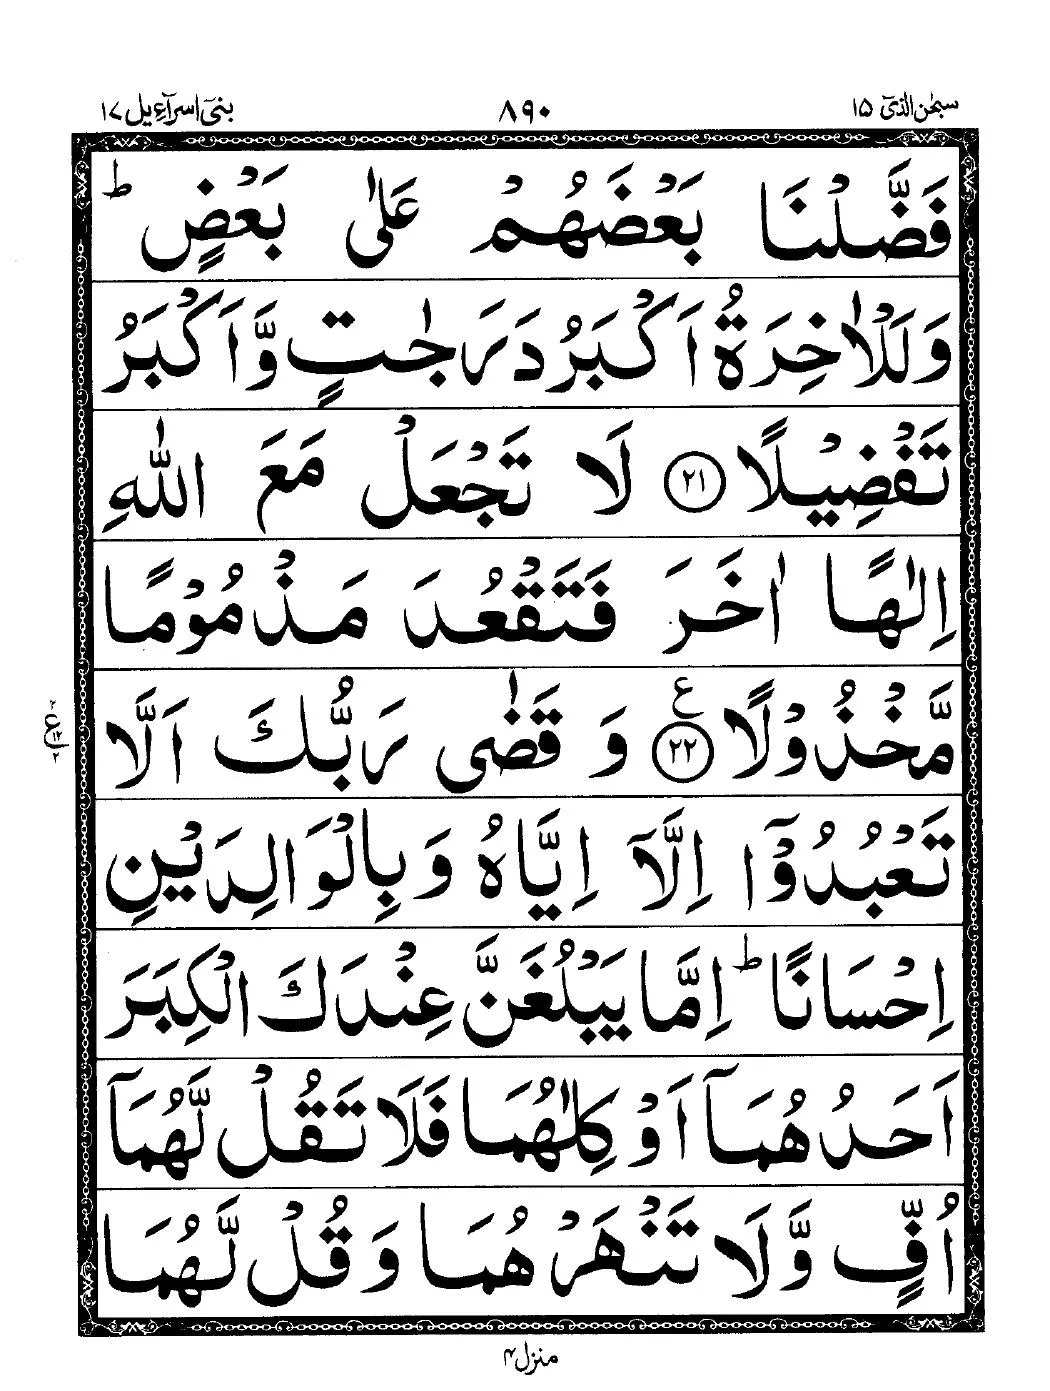 سبحٰن الذیٓ ١٥ ٨٩٠ بنیٓ اسرآءیل ١٧
فَضَّلْنَا بَعْضَهُمْ عَلٰى بَعْضٍ ؕ
وَلَلْاٰخِرَةُ اَكْبَرُ دَرَجٰتٍ وَّاَكْبَرُ
تَفْضِيْلًا ﴿٢١﴾ لَا تَجْعَلْ مَعَ اللّٰهِ
اِلٰهًا اٰخَرَ فَتَقْعُدَ مَذْمُوْمًا
مَّخْذُوْلًا ﴿٢٢﴾ ع وَ قَضٰى رَبُّكَ اَلَّا
٢ ع ١٢ ٢
تَعْبُدُوْۤا اِلَّاۤ اِيَّاهُ وَ بِالْوَالِدَيْنِ
اِحْسَانًا ؕ اِمَّا يَبْلُغَنَّ عِنْدَكَ الْكِبَرَ
اَحَدُهُمَاۤ اَوْ كِلٰهُمَا فَلَا تَقُلْ لَّهُمَاۤ
اُفٍّ وَّلَا تَنْهَرْهُمَا وَ قُلْ لَّهُمَا
منزل ٤